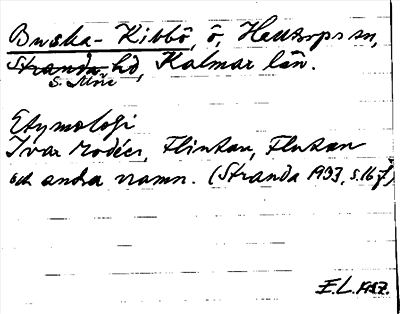 Buska-Kibbö, ö, Hossmo sn,
Stranda hd, Kalmar län.
S. Möre
Etymologi
Ivar Modéer, Flinkan, Flutan
och andra namn. (Stranda 1933, s. 16 f)
E.L. 1937.